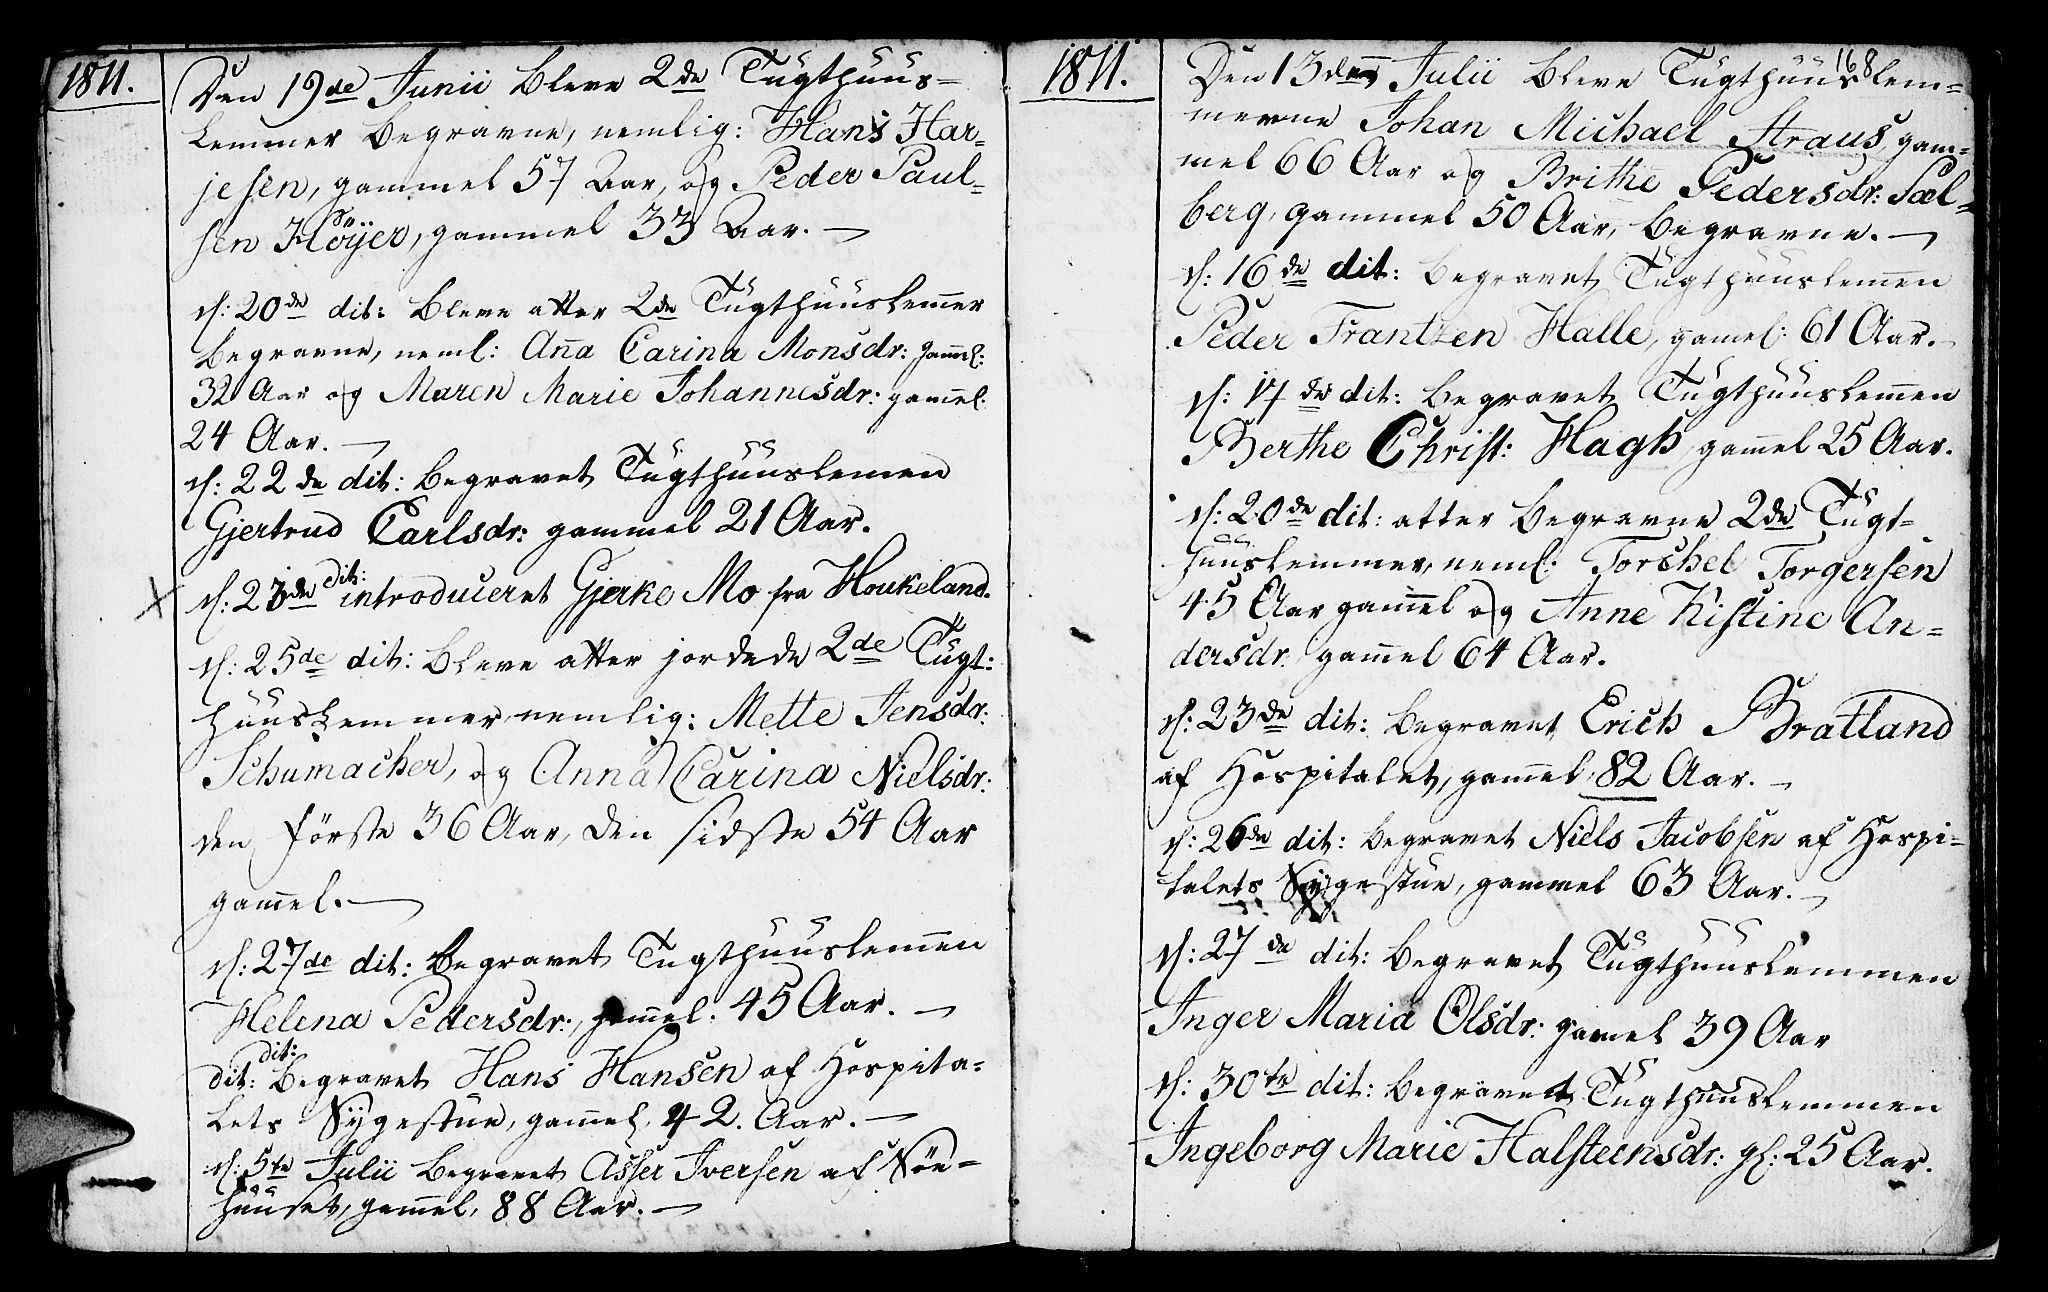 1811.
Den 19de Junii bleve 2de Tugthuus-
Lemmer begravne, nemlig: Hans Har-
jesen, gammel 57 Aar, og Peder Paul-
sen Höijer, gammel 33 Aar. —
d: 20de dit: bleve atter 2de Tugthuuslemer
begravne, neml: Ana Carina Monsdr: gamel:
32 Aar og Maren Marie Johannesdr: gamel:
24 Aar. —
d: 22de dit: begravet Tugthuuslemen
Gjertrud Carlsdr: gammel 21 Aar.
d: 23de dit: introduceret Gjerke Mo fra Houkeland.
d: 25de dit: bleve atter jordede 2de Tugt:
huusLemmer, nemlig: Mette Jensdr:
Schumacher, og Anna Carina Nielsdr:
den förste 36 Aar, den sidste 54 Aar
gamel. —
d: 27de dit: begravet Tugthuuslemen
Helena Pedersdr:, gamel: 45 Aar. —
dit: dit: begravet Hans Hansen af Hospita-
lets Sygestue, gamel, 42. Aar. —
d: 5te Julii begravet Asser Iversen af
huuset, gamel, 88 Aar. —
1811.
168
Den 13de Julii bleve Tugthuuslem-
merne Johan Michael Straus, gam-
mel 66 Aar og Brithe Pedersdr: Sæl-
berg, gammel 50 Aar, begravne. —
d: 16de dit: begravet Tugthuuslemen
Peder Frantzen Halle, gamel: 61 Aar.
d: 17de dit: begravet Tugthuuslemen
Berthe Christ: Hagh, gamel 25 Aar.
d: 20de dit: atter begravne 2de Tugt-
huuslemmer, neml: Torchel Torgersen
45 Aar gamel og Anne Kistine An-
dersdr: gamel 64 Aar.
d: 23de dit: begravet Erich Bratland
af Hospitalet, gamel, 82 Aar. —
d: 26de dit: begravet Niels Jacobsen af Hospi-
talets Sygestue, gammel 63 Aar. —
d: 27de dit: begravet Tugthuuslemmen
Inger Maria Olsdr: gamel 39 Aar
d: 30te dit: begravet Tugthuuslemmen
Ingeborg Marie Halsteensdr: gl: 25 Aar.